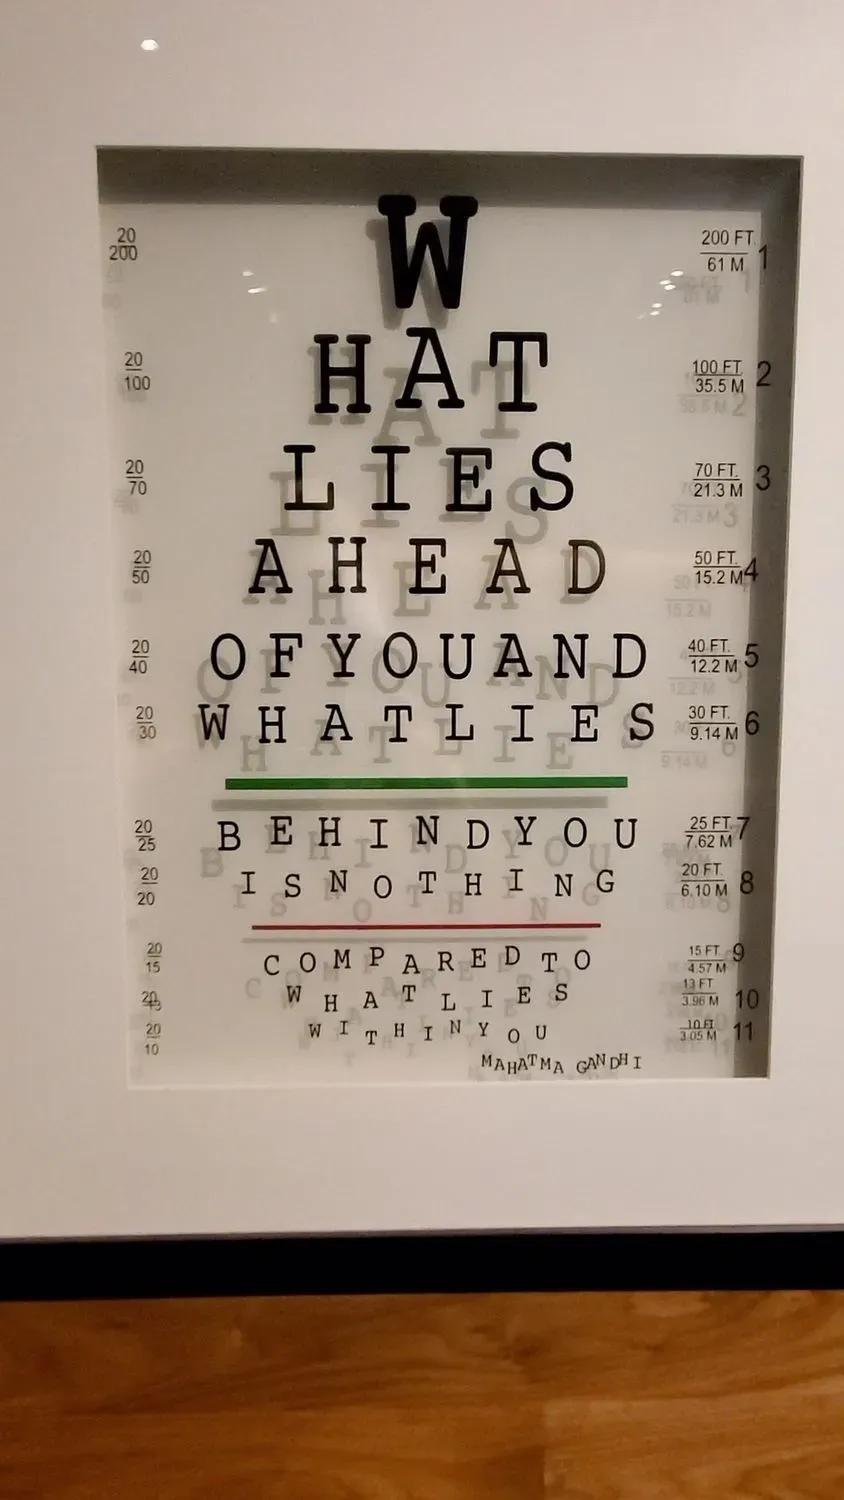 20/200 W 200 FT. 61 M 1
20/100 HAT 100 FT. 35.5 M 2
20/70 LIES 70 FT. 21.3 M 3
20/50 AHEAD 50 FT. 15.2 M 4
20/40 OFYOUAND 40 FT. 12.2 M 5
20/30 WHATLIES 30 FT. 9.14 M 6
20/25 BEHINDYOU 25 FT. 7.62 M 7
20/20 ISNOTHING 20 FT. 6.10 M 8
20/15 COMPAREDTO 15 FT. 4.57 M 9
WHATLIES 13 FT 3.96 M 10
20/10 WITHINYOU 10 FT 3.05 M 11
MAHATMA GANDHI